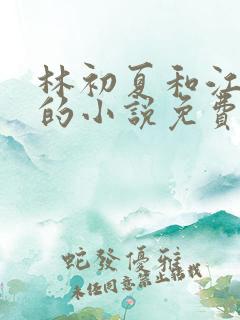 林初夏和江
的小說免費
蛇發優雅
未經同意禁止轉載